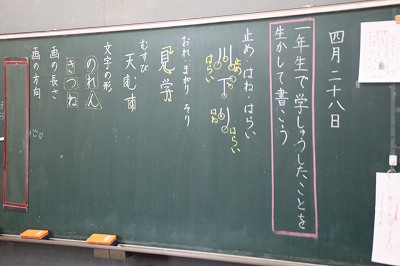 四月二十八日
一年生で学しゅうしたことを
生かして書こう
止め はね・はらい
川下り
止め
はらい
はね
はらい
おれ・まがり そり
見学
むすび
天むす
文字の形
のれん
きつね
画の長さ
画の方向